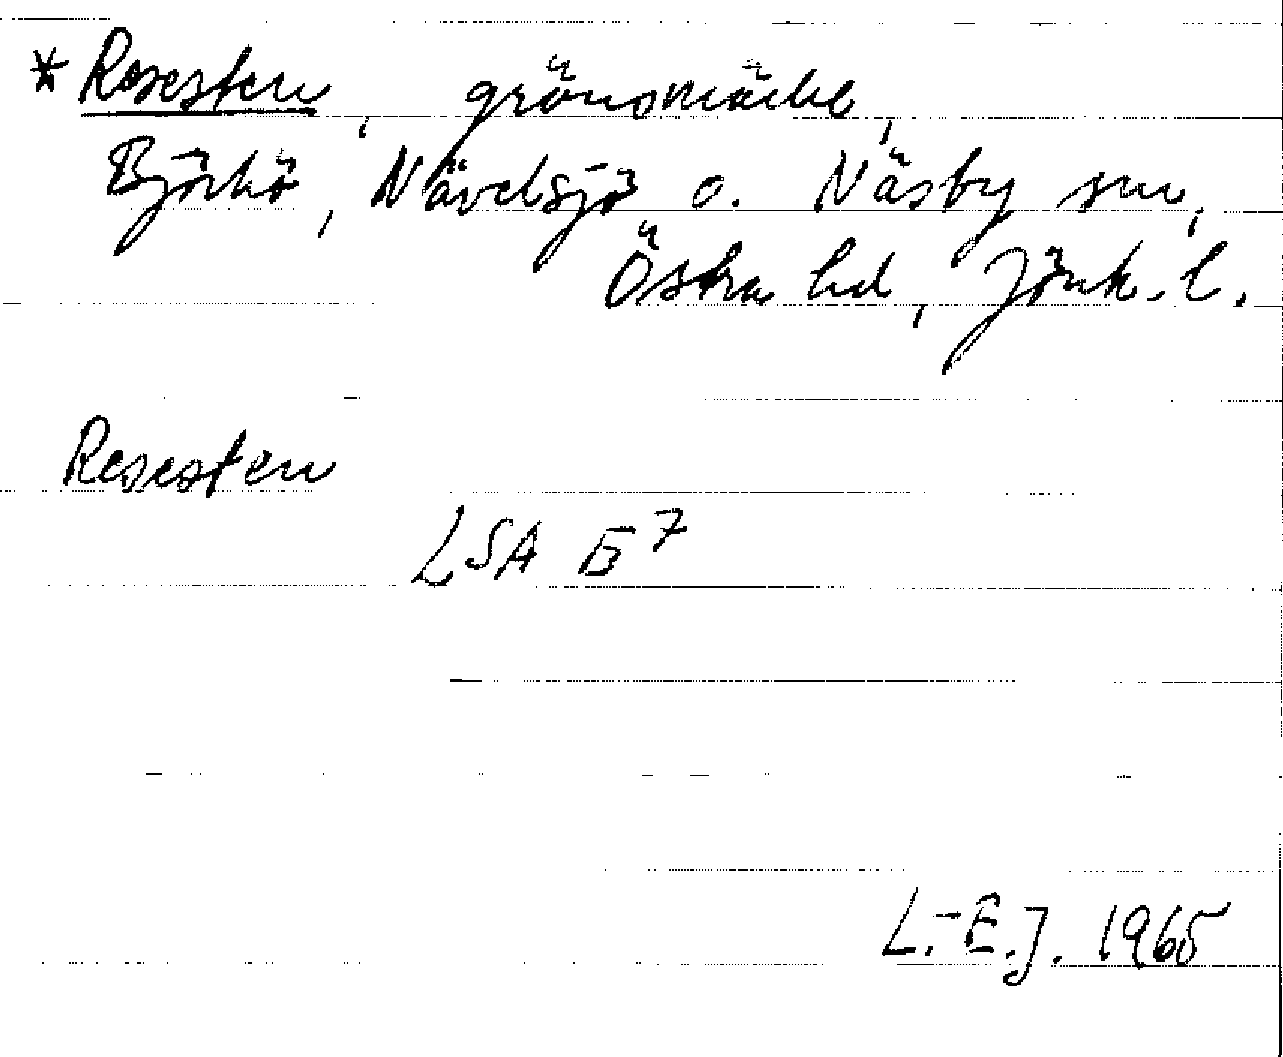 * Rosesten, gränsmärke,
Björkö, Nävelsjö o. Näsby snr,
Östra hd, Jönk. l.
Resesten
LSA E7
L.-E.J. 1965